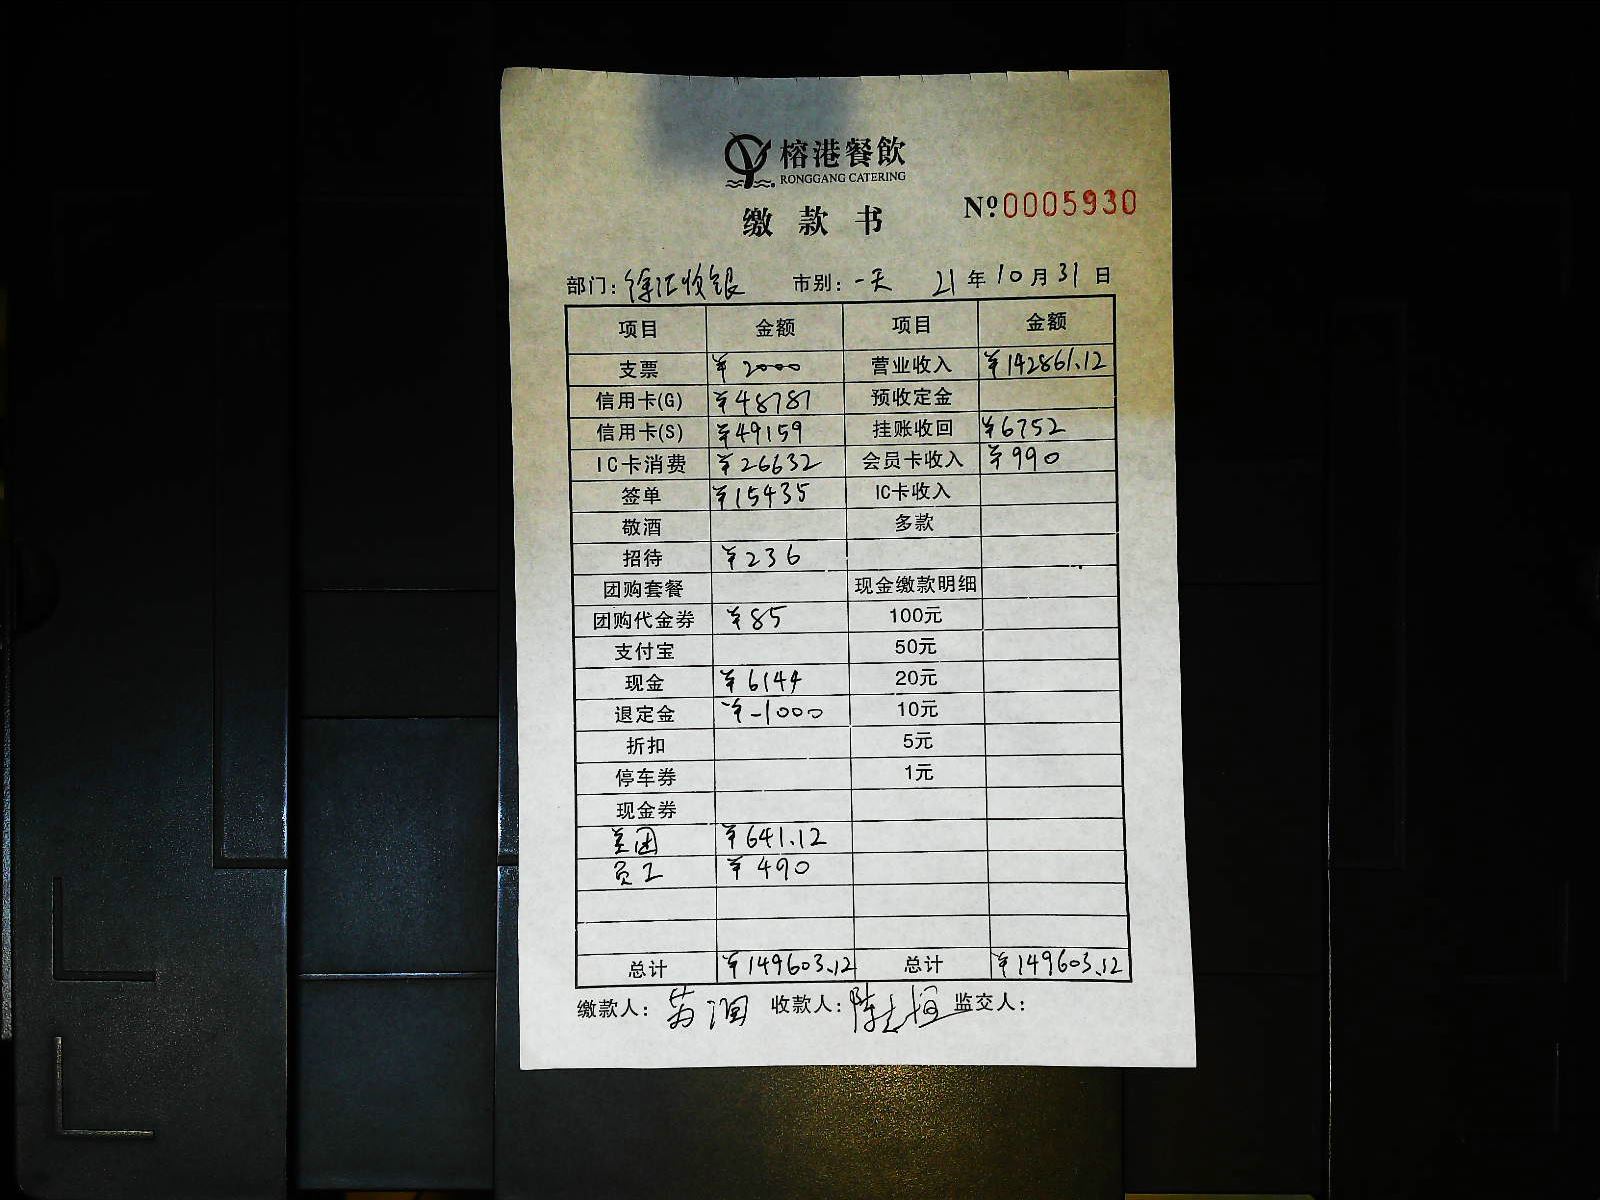 榕港餐飲
RONGGANG CATERING
缴款书
Nº0005930
部门：徐汇收银 市别：一天 21年10月31日
项目 金额 项目 金额
支票 ¥2000 营业收入 ¥142861.12
信用卡(G) ¥48787 预收定金
信用卡(S) ¥49159 挂账收回 ¥6752
IC卡消费 ¥26632 会员卡收入 ¥990
签单 ¥15435 IC卡收入
敬酒 多款
招待 ¥236
团购套餐 现金缴款明细
团购代金券 ¥85 100元
支付宝 50元
现金 ¥6144 20元
退定金 ¥-1000 10元
折扣 5元
停车券 1元
现金券
美团 ¥641.12
员工 ¥490
总计 ¥149603.12 总计 ¥149603.12
缴款人： 收款人： 监交人：